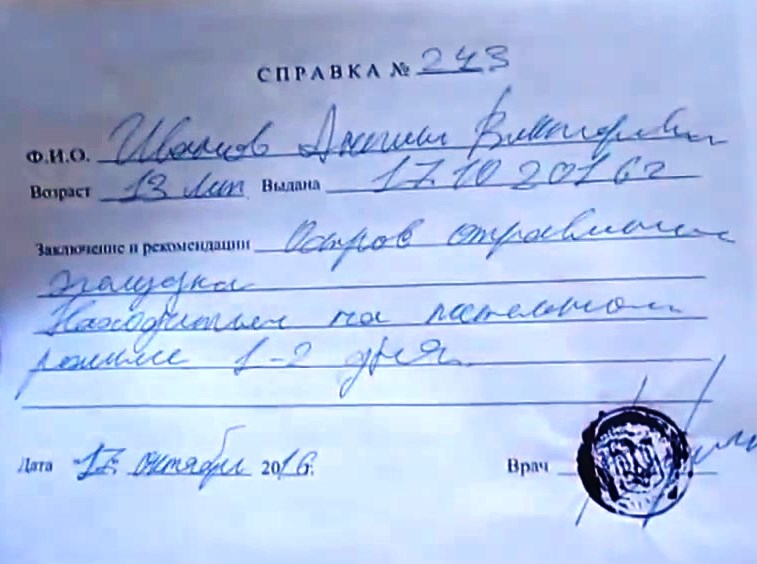 СПРАВКА № 243
Ф.И.О. Иванов Антон Викторович
Возраст 13 лет Выдана 17.10 2016 г
Заключение и рекомендации Остров отравление
желудка
Находиться на постельном
режиме 1-2 дня
Дата 17 октября 2016г.
Врач